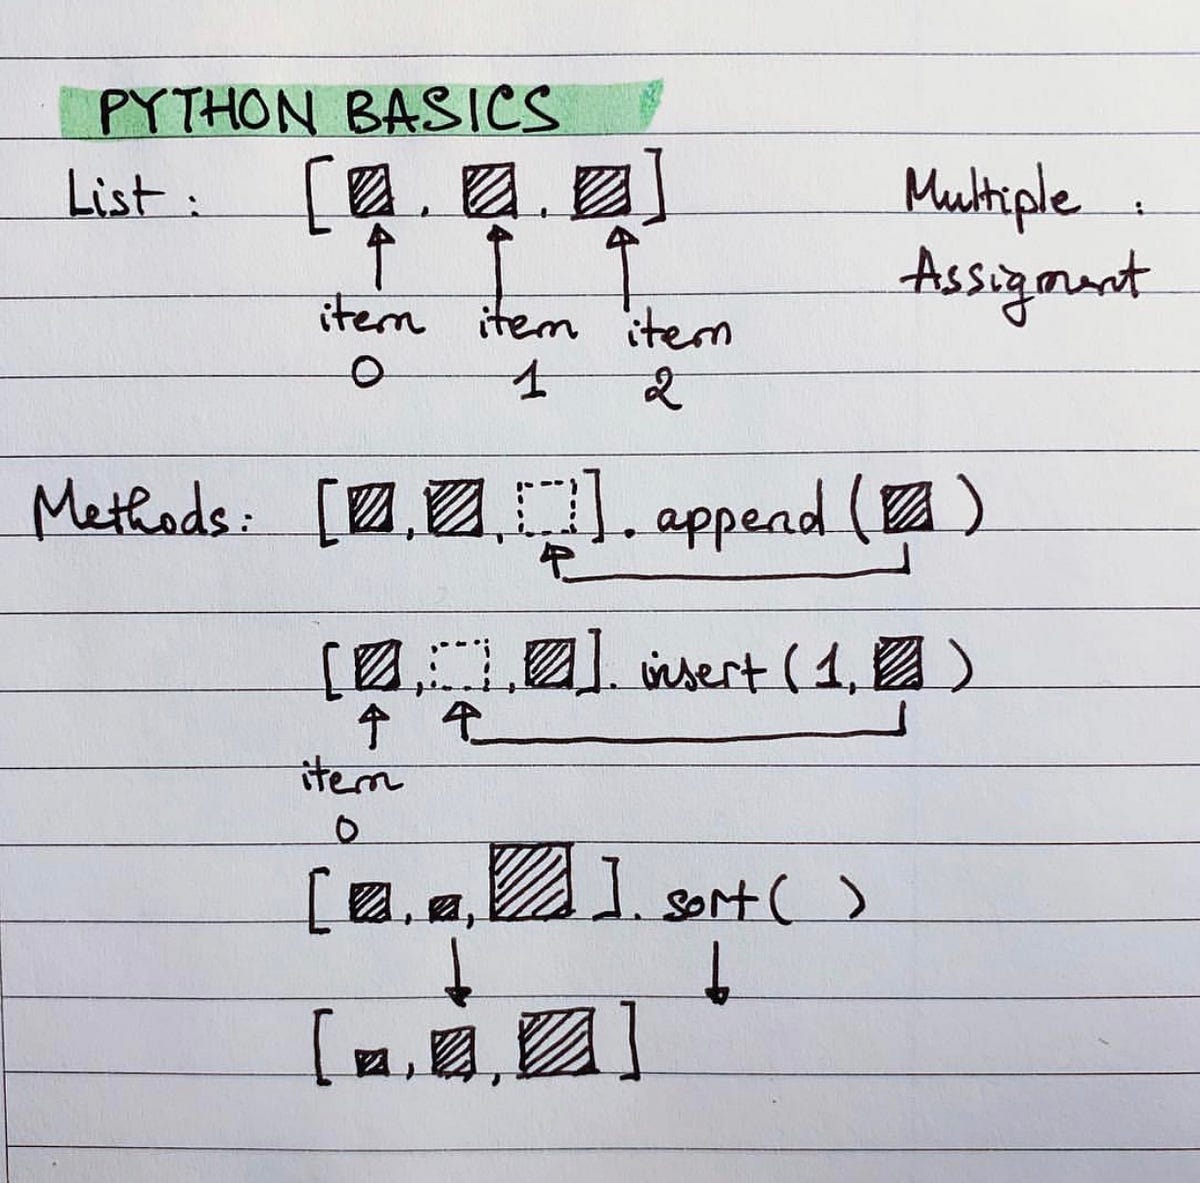 PYTHON BASICS
List : [ , , ]
item item item
0 1 2
Multiple :
Assigment
Methods: [ , , ]. append ( )
[ , , ]. insert (1, )
item
0
[ , , ]. sort ( )
[ , , ]